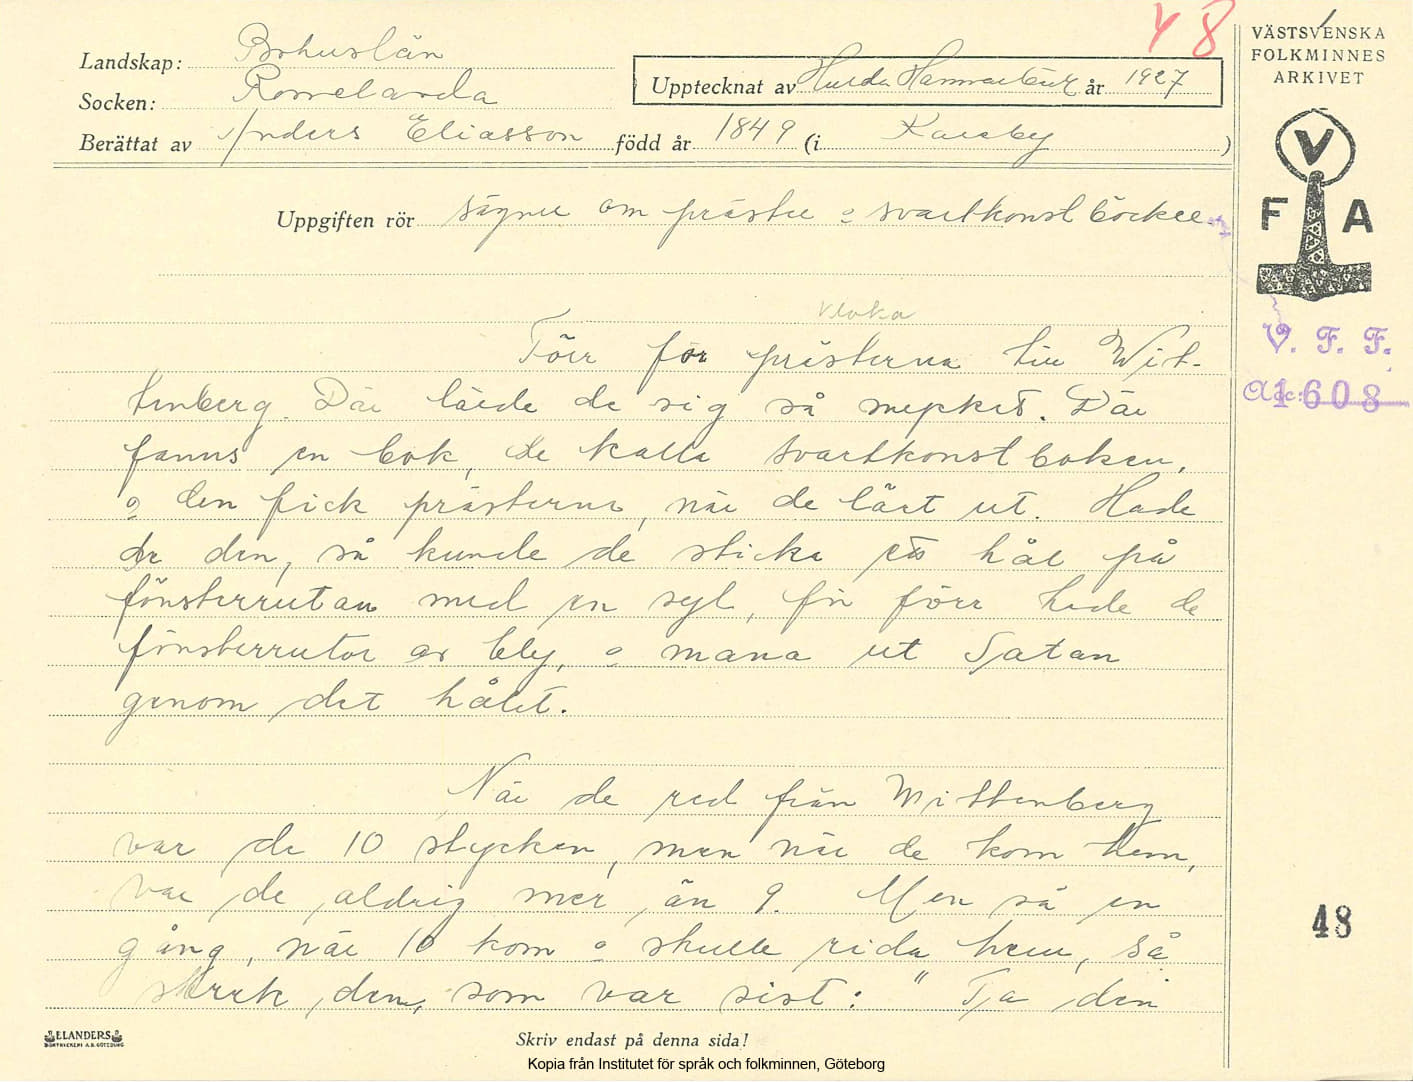 48
VÄSTSVENSKA
FOLKMINNES
ARKIVET
Landskap: Bohuslän
Socken: Romelanda
Upptecknat av Hulda Hammarbäck år 1927
Berättat av Anders Eliasson född år 1849 (i Kareby)
V
F A
Uppgiften rör sägner om präster o svartkonstböcker.
kloka
Förr for prästerna till Wit-
tenberg. Där lärde de sig så mycket. Där
fanns en bok, de kalla svartkonstboken,
o den fick prästerna, när de lärt ut. Hade
de den, så kunde de sticka ett hål på
fönsterrutan med en syl, för förr hade de
fönsterrutor av bly, o mana ut Satan
genom det hålet.
När de red från Wittenberg
var de 10 stycken, men när de kom hem,
var de aldrig mer än 9. Men så en
gång, när 10 kom o skulle rida hem, så
skrek den, som var sist: "Ta den
V. F. F.
Acc: 1608
48
ELANDERS
BOKTRYCKERI A.B. GÖTEBORG
Skriv endast på denna sida!
Kopia från Institutet för språk och folkminnen, Göteborg